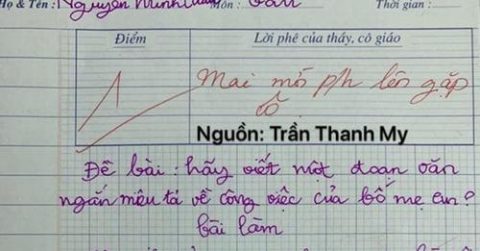 Họ & Tên: Nguyễn Minh Môn: Văn Thời gian:
Điểm Lời phê của thầy, cô giáo
1 Mai mời p/h lên gặp
cô
Nguồn: Trần Thanh My
Đề bài: hãy viết một đoạn văn
ngắn miêu tả về công việc của bố mẹ em?
bài làm